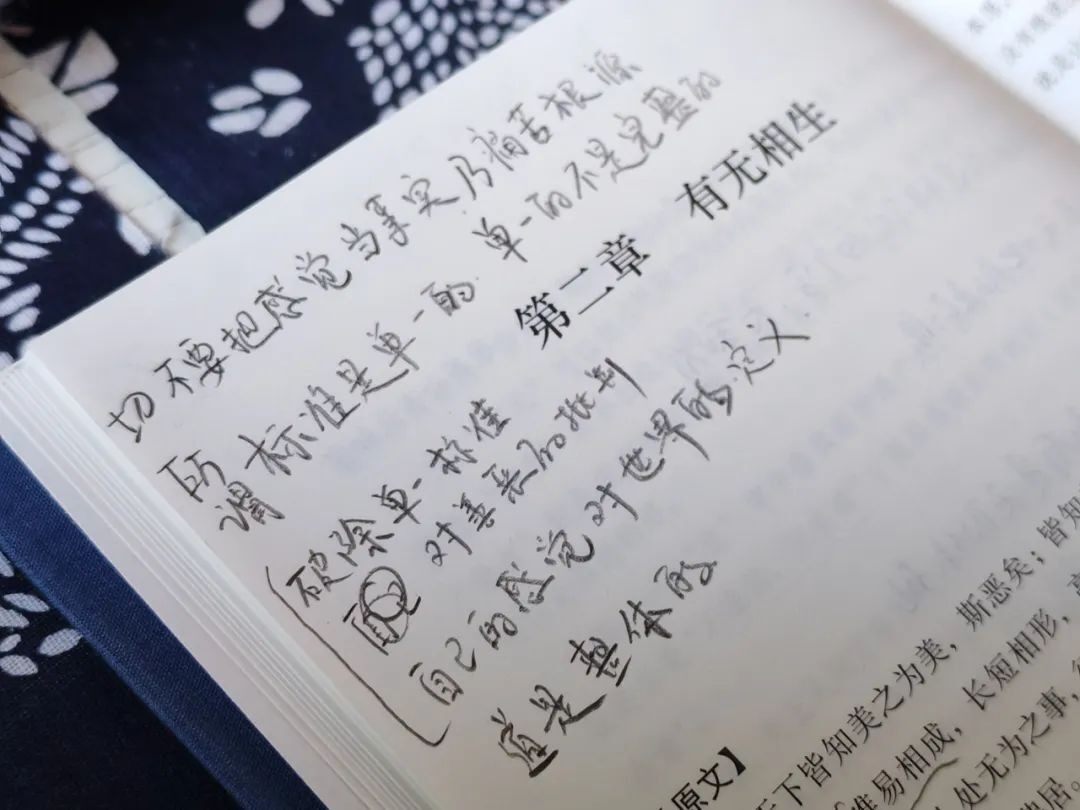 切不要把感觉当事实乃痛苦根源
所谓标准是单一的 单一的不是完整的
第二章 有无相生
破除单一标准
对善恶的批判
自己的感觉对世界的定义.
道是整体的
原文】
天下皆知美之为美，斯恶矣；皆知
难易相成，长短相形，高
处无为之事，
居。